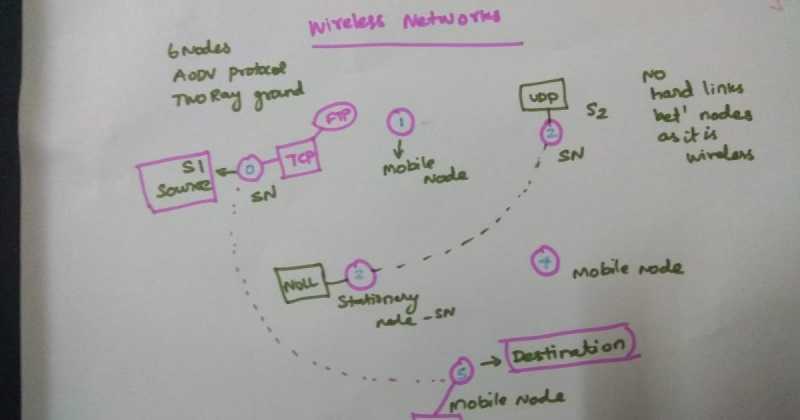 Wireless Networks
6 Nodes
AODV protocol
TWO Ray ground
NO
hard links
bet' nodes
as it is
wireless
FTP
1
UDP
S2
S1
Source
0
TCP
2
SN
SN
Mobile
Node
NULL
2
Stationery
node - SN
4
Mobile node
5
Destination
Mobile Node